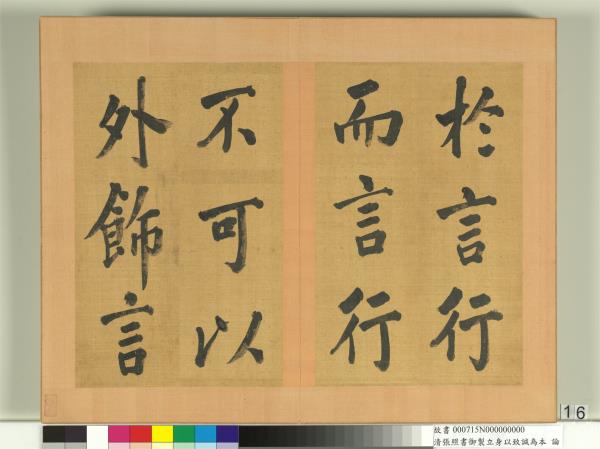 於言行
而言行
不可以
外飾言
16
故書 000715N000000000
清張照書御製立身以致誠為本 論